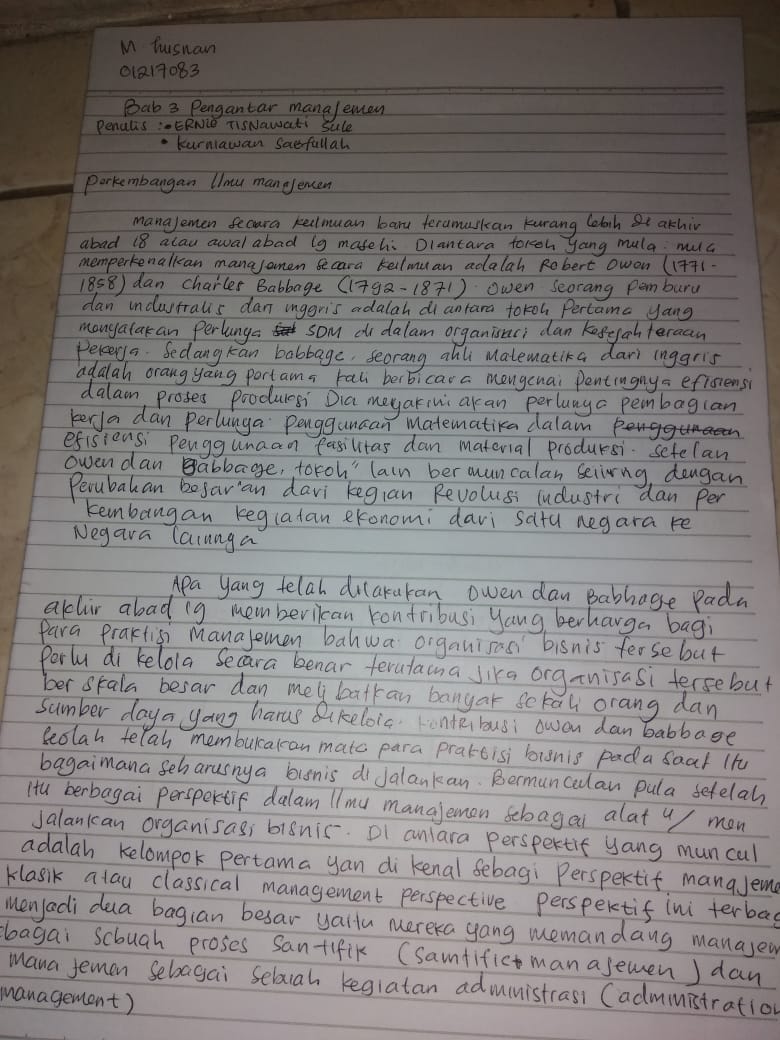 M Husnan
01217083
Bab 3 Pengantar manajemen
Penulis : • ERNIE TISNawati Sule
• Kurniawan Saefullah
Perkembangan Ilmu manajemen
manajemen secara keilmuan baru terumuskan kurang lebih di akhir
abad 18 atau awal abad 19 masehi. Diantara tokoh yang mula-mula
memperkenalkan manajemen secara keilmuan adalah Robert Owen (1771-
1858) dan charles Babbage (1792-1871). Owen seorang pemburu
dan industralis dari inggris adalah di antara tokoh Pertama yang
menyatakan perlunga SDM di dalam organisasi dan kesejahteraan
Pekerja. Sedangkan babbage, seorang ahli Matematika dari inggris
adalah orang yang pertama kali berbicara mengenai pentingnya efisiensi
dalam proses produksi Dia meyakini akan perlunya pembagian
kerja dan perlunya penggunaan Matematika dalam penggunaan
efisiensi penggunaan fasilitas dan material produksi. setelah
Owen dan Babbage, tokoh" lain bermunculan seiring dengan
Perubahan besar"an dari kegian Revolusi industri dan per
kembangan kegiatan ekonomi dari satu negara ke
Negara lainnya
Apa yang telah dilakukan Owen dan Babbage pada
akhir abad 19 memberikan kontribusi yang berharga bagi
Para Praktisi Manajemen bahwa organisasi bisnis tersebut
perlu di kelola secara benar terutama jika organisasi tersebut
ber skala besar dan melibatkan banyak sekali orang dan
sumber daya yang harus dikelola. kontribusi owen dan babbage
seolah telah membukakan mata para praktisi bisnis pada saat itu
bagaimana seharusnya bisnis di jalankan. Bermunculan pula setelah
itu berbagai perspektif dalam Ilmu manajemen sebagai alat u/ men
jalankan organisasi bisnis. Di antara perspektif yang muncul
adalah kelompok pertama yan di kenal sebagi Perspektif manajeme
klasik atau classical management perspective perspektif ini terbag
menjadi dua bagian besar yaitu mereka yang memandang manajem
ebagai sebuah proses santifik (samtifict manajemen) dan
mana jemen sebagai sebuah kegiatan administrasi (administration
management)